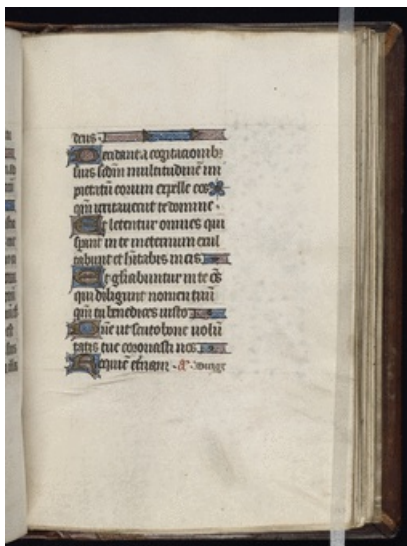 deus.
Decidant a cogitacionib9
suis scdm multitudinē im
pietatū eorum expelle eos
qm̄ irritauerunt te domine.
Et letentur omnes qui
sperant in te in eternum exul
tabunt et hītabis in eis
Et gl̄iabuntur in te om̄s
qui diligunt nomen tuū
qm̄ tu benedices iusto
Dn̄e ut scuto bone uolū
tatis tue coronasti nos
Requiē eternam. A. Dirige